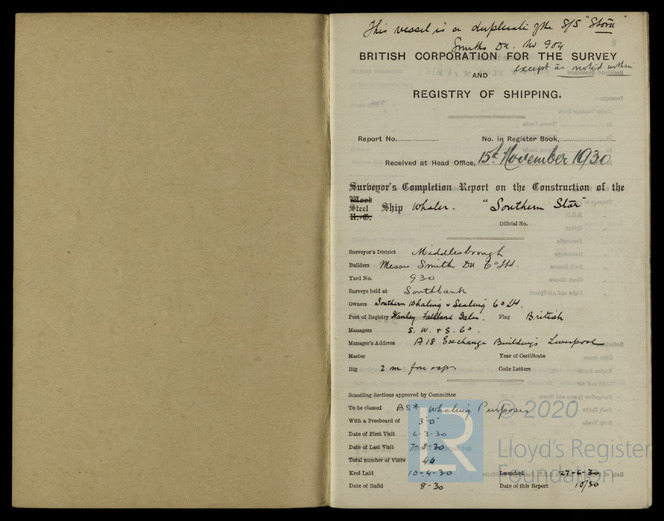 This vessel is a duplicate of the S/S "Storå"
Smiths Dk. No 904
BRITISH CORPORATION FOR THE SURVEY
except as noted within
AND
REGISTRY OF SHIPPING.
Report No. No. in Register Book,
Received at Head Office, 15th November 1930
Surveyor's Completion Report on the Construction of the
Wood
Steel Ship Whaler. "Southern Star"
R.-C.
Official No.
Surveyor's District Middlesbrough
Builders Messrs Smiths Dk Co Ltd.
Yard No. 930
Surveys held at Southbank
Owners Southern Whaling & Sealing Co Ltd.
Port of Registry Stanley Falkland Isles. Flag British
Managers S. W. & S. Co.
Manager's Address A18 Exchange Buildings Liverpool
Master Year of Certificate
Rig 2 m Code Letters
Scantling Sections approved by Committee
To be classed BS* Whaling Purposes
With a Freeboard of 3-0
Date of First Visit 6-3-30
Date of Last Visit 7-8-30
Total number of Visits 46
Keel Laid 10-4-30 Launched 27-6-30
Date of Build 8-30 Date of this Report 10/30
© 2020
LR
Lloyd's Register
Foundation